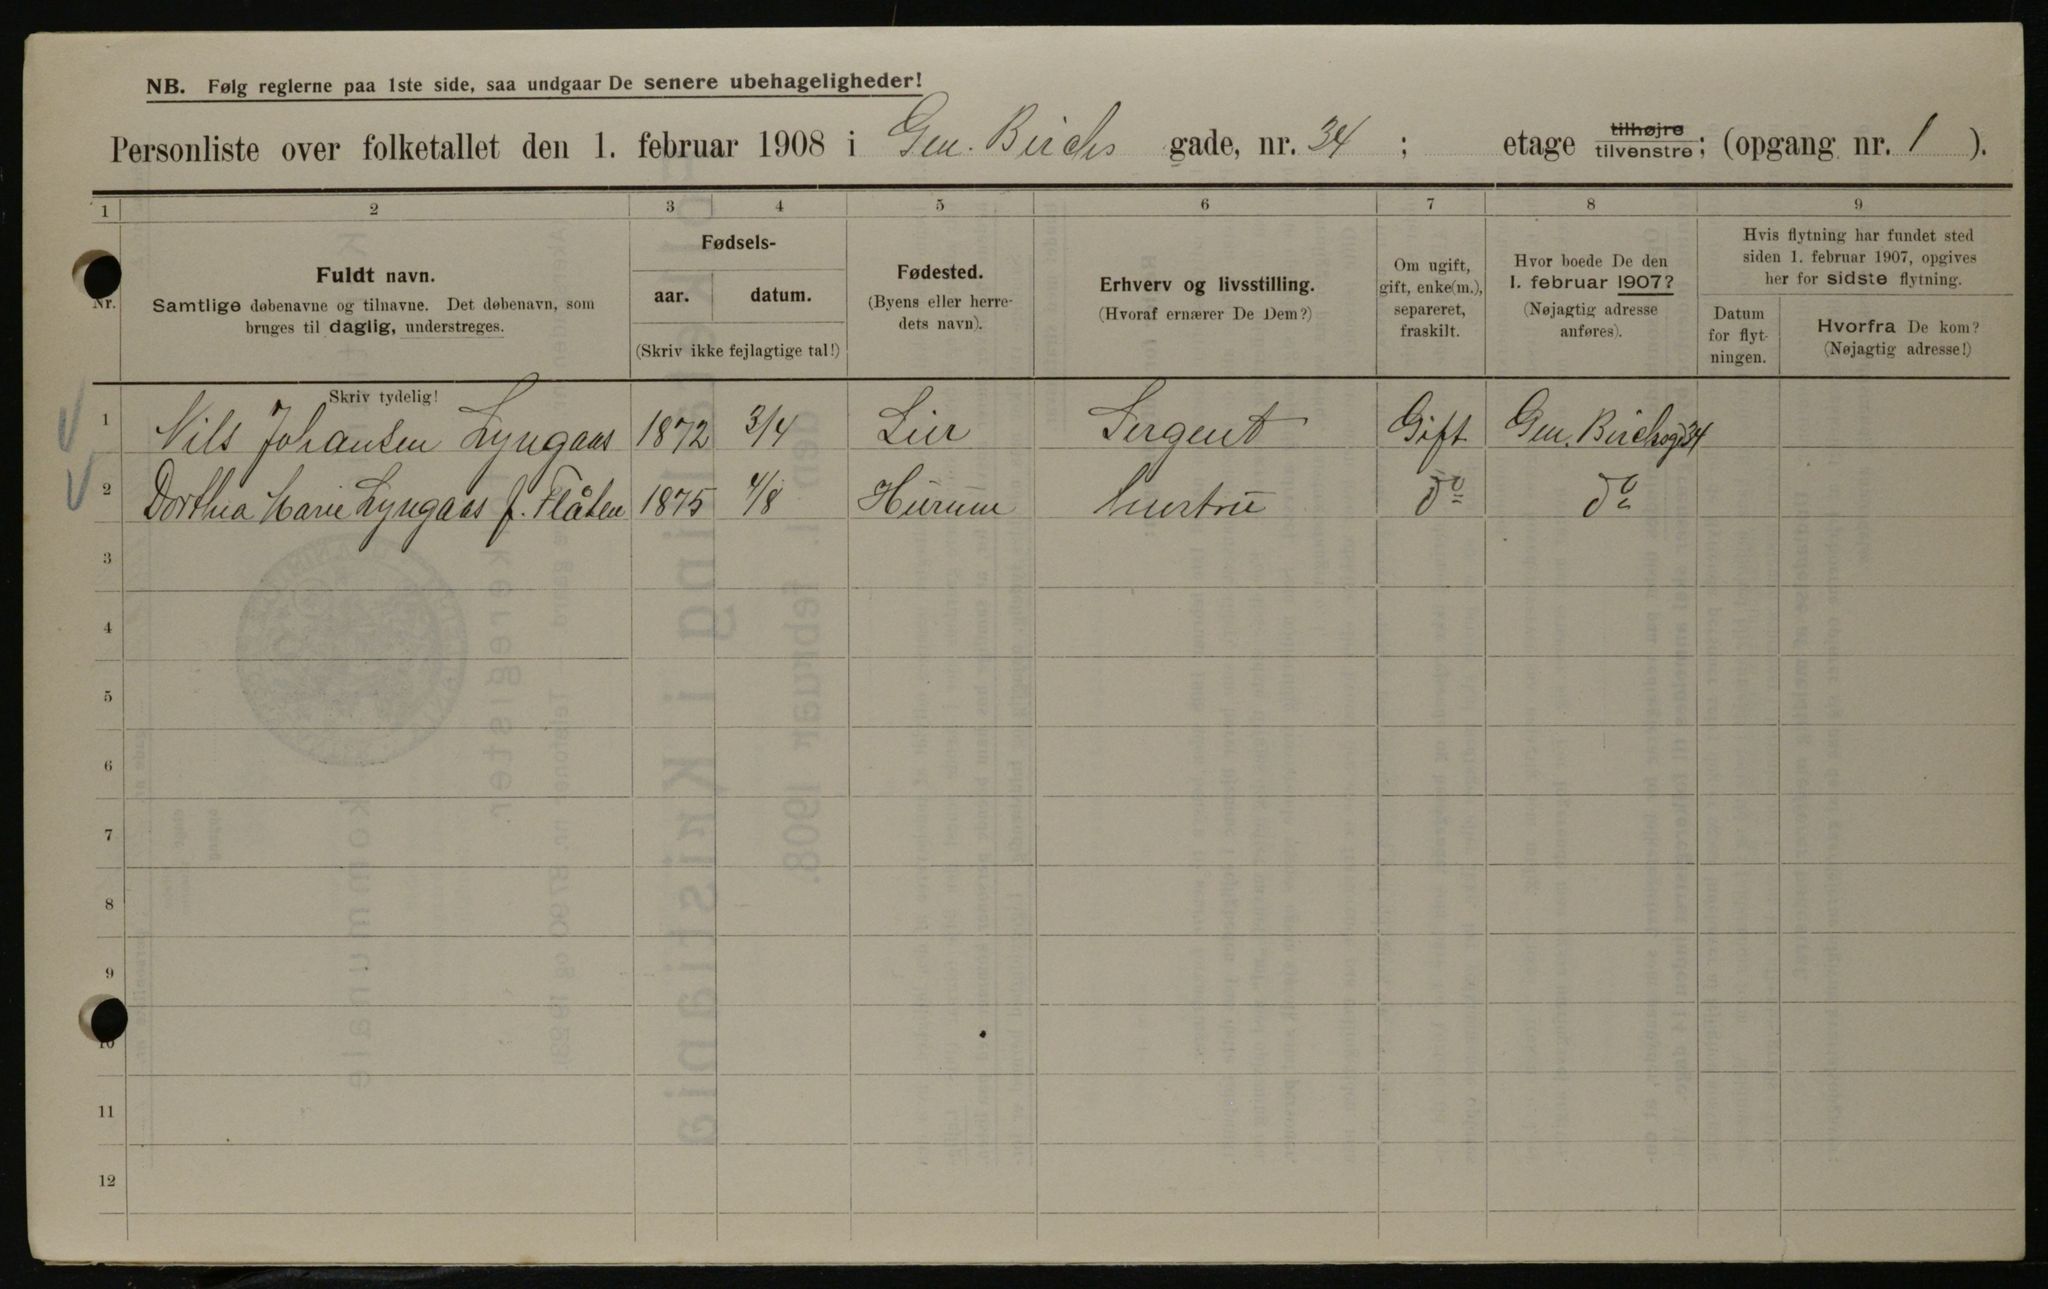 NB. Følg reglerne paa 1ste side, saa undgaar De senere ubehageligheder!
Personliste over folketallet den 1. februar 1908 i Gen. Birchs gade, nr. 34 ; etage tilhøjre tilvenstre; (opgang nr. 1 ).
1 2 3 4 5 6 7 8 9
Nr.
Fuldt navn.
Samtlige døbenavne og tilnavne. Det døbenavn, som
bruges til daglig, understreges.
Fødsels-
aar. datum.
(Skriv ikke fejlagtige tal!)
Fødested.
(Byens eller herre-
dets navn).
Erhverv og livsstilling.
(Hvoraf ernærer De Dem?)
Om ugift,
gift, enke(m.),
separeret,
fraskilt.
Hvor boede De den
1. februar 1907?
(Nøjagtig adresse
anføres).
Hvis flytning har fundet sted
siden 1. februar 1907, opgives
her for sidste flytning.
Datum
for flyt-
ningen.
Hvorfra De kom?
(Nøjagtig adresse!)
Skriv tydelig!
1 Nils Johansen Lyngaas 1872 3/4 Lier Sergent Gift Gen. Birchsg. 34
2 Dorthea Marie Lyngaas f. Flåten 1875 4/8 Hurum hustru do do
3
4
5
6
7
8
9
10
11
12